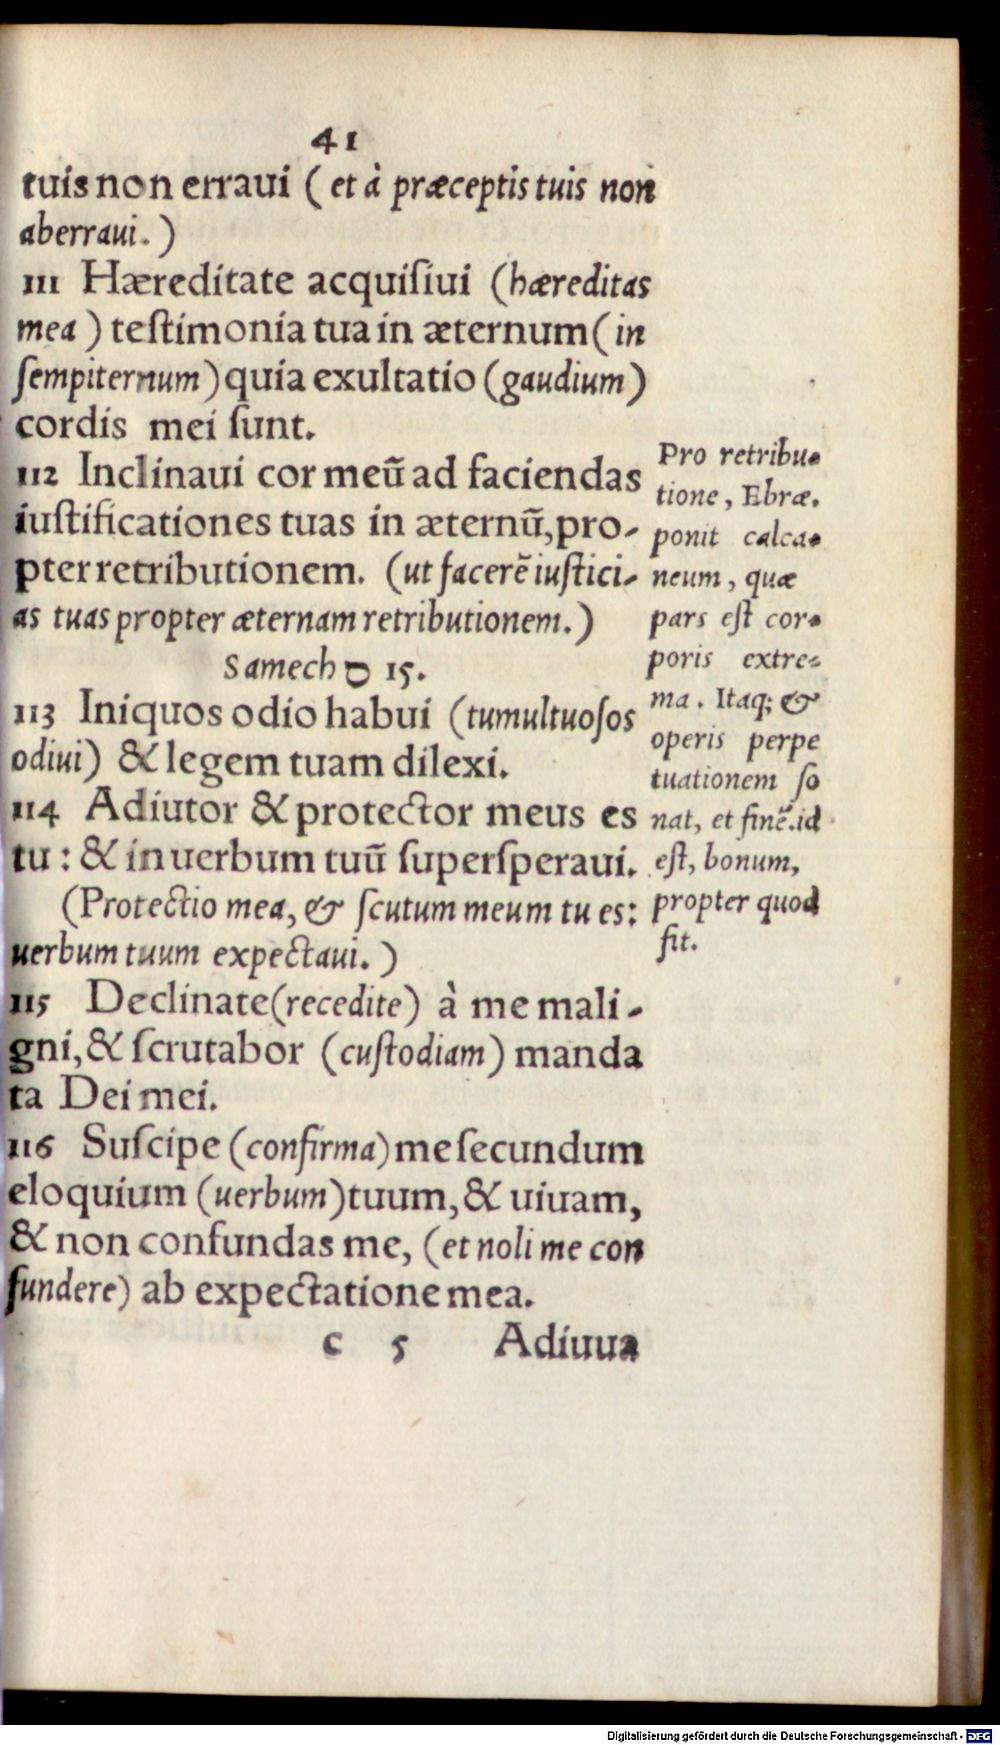 41
tuis non erraui ( et à præceptis tuis non
aberraui. )
111 Hæreditate acquiſiui (hæreditas
mea ) teſtimonia tua in æternum ( in
ſempiternum ) quia exultatio (gaudium )
cordis mei ſunt.
112 Inclinaui cor meũ ad faciendas
iuſtificationes tuas in æternũ, pro-
pter retributionem. (ut facerẽ iuſtici-
as tuas propter æternam retributionem. )
Samech ס 15.
113 Iniquos odio habui (tumultuoſos
odiui) & legem tuam dilexi.
114 Adiutor & protector meus es
tu : & in uerbum tuũ superſperaui.
(Protectio mea, & ſcutum meum tu es:
uerbum tuum expectaui. )
115 Declinate (recedite) à me mali-
gni, & ſcrutabor (cuſtodiam) manda
ta Dei mei.
116 Suſcipe (confirma) me ſecundum
eloquium (uerbum) tuum, & uiuam,
& non confundas me, (et noli me con
fundere) ab expectatione mea.
c 5 Adiuua
Pro retribu-
tione, Ebræ.
ponit calca-
neum, quæ
pars eſt cor-
poris extre-
ma. Itaq; &
operis perpe
tuationem ſo
nat, et finẽ. id
eſt, bonum,
propter quod
fit.
Digitalisierung gefördert durch die Deutsche Forschungsgemeinschaft - DFG